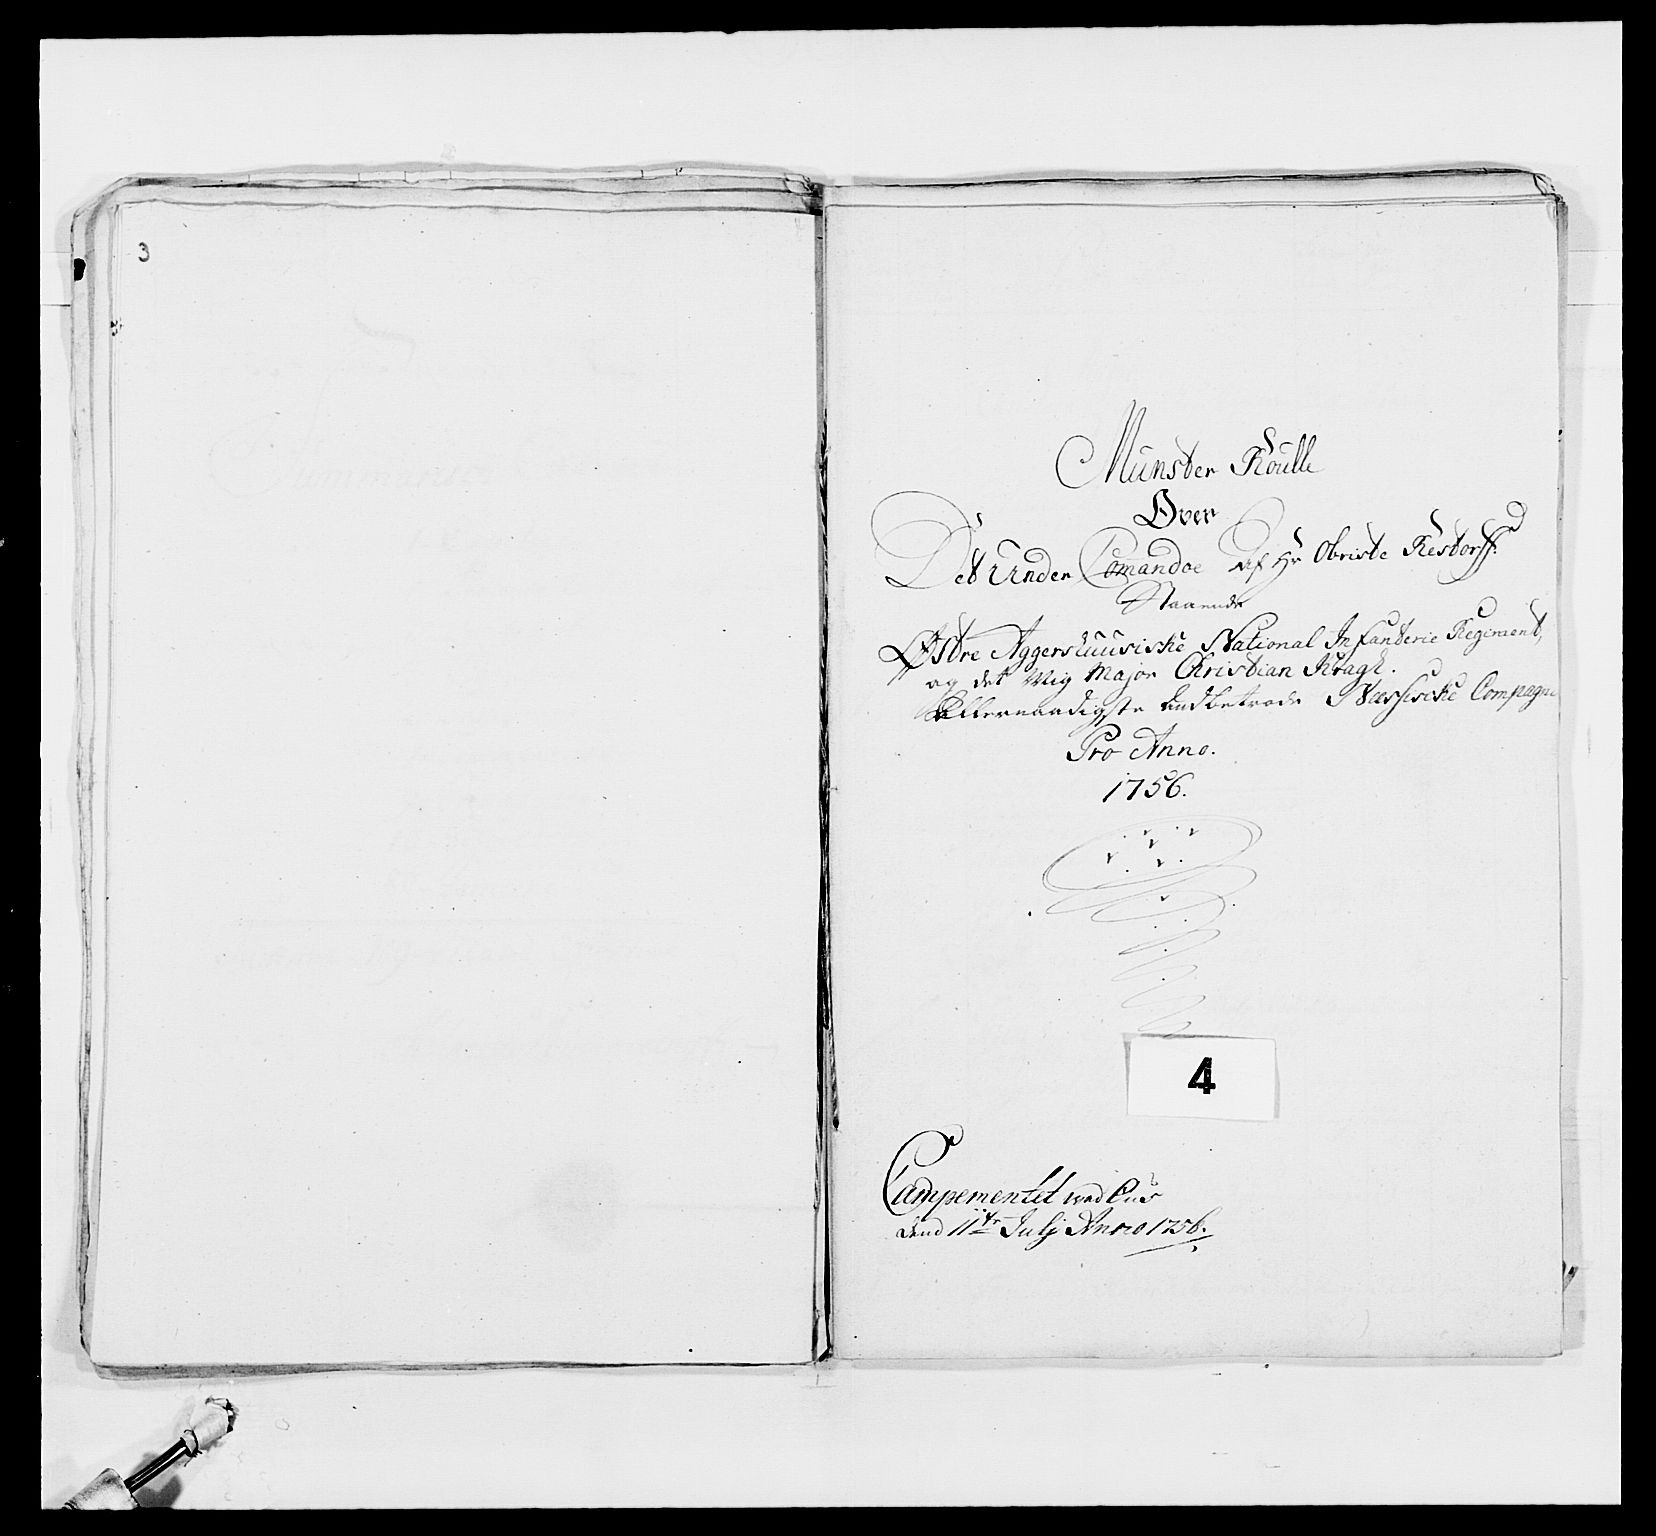 3
Münster Roulle
Over
Det Under Comandoe af Hr Obriste Restorff
Staaende
Østre Aggershuusiske National Infanterie Regiment,
og det Mig Major Christian Kragh.
Allernaadigste Andbetrode Næssiske Compagnie
Pro Anno.
1756.
4
Campementet ved
dend 11te Julj Anno 1756.